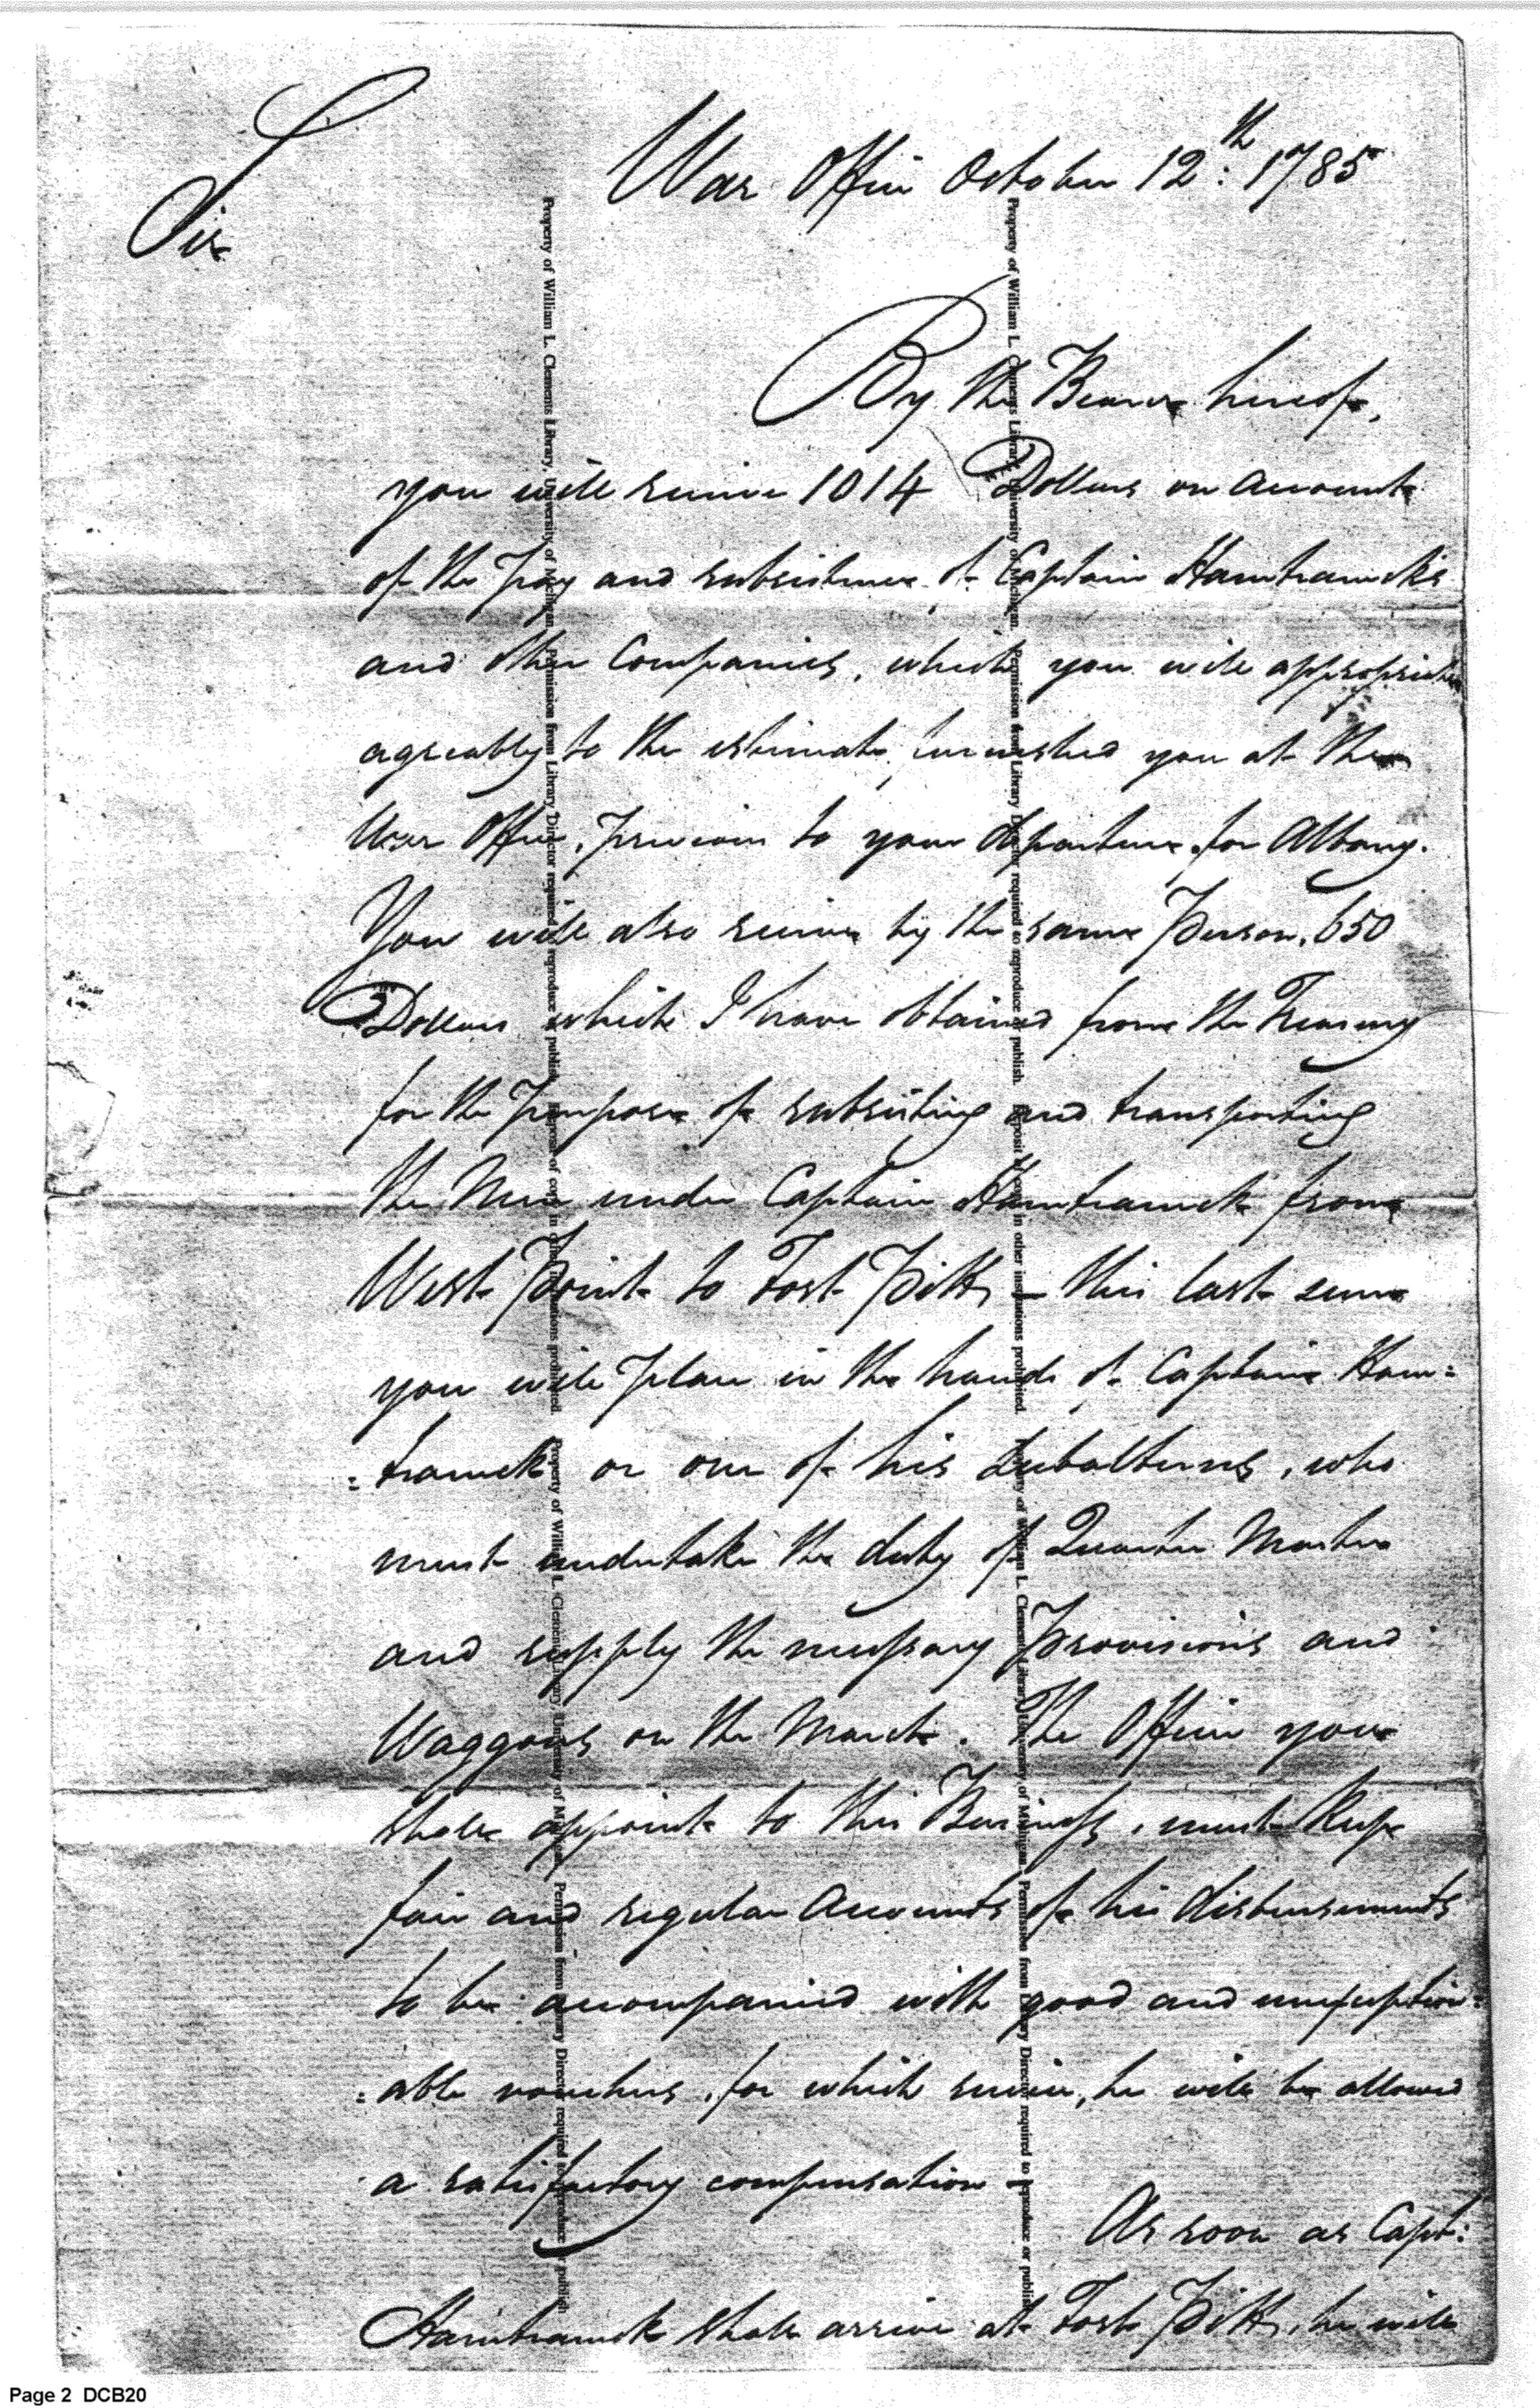 War Office October 12th: 1785
Sir
By the Bearer hereof,
you will receive 1014 Dollars on account
of the Pay and subsistence of Captain Hamtramcks
and other Companies, which you will appropriate
agreably to the estimate furnished you at the
War Office, previous to your departure for Albany.
You will also receive by the same Person, 650
Dollars which I have obtained from the Treasury
for the Purpose of subsisting and transporting
the Men under Captain Hamtramck from
West Point to Fort Pitt, – this last sum
you will place in the hands of Captain Ham=
=tramck or one of his Subalterns, who
must undertake the duty of Quarter Master
and supply the necessary Provisions and
Waggons on the March. The Officer you
shall appoint to this Business, must keep
fair and regular Accounts of his disbursements
to be accompanied with good and unexception=
=able vouchers, for which service, he will be allowed
a satisfactory compensation –
As soon as Capt:
Hamtramck shall arrive at Fort Pitt, he will
Property of William L. Clements Library, University of Michigan. Permission from Library Director required to reproduce or publish. Deposit of copy in other institutions prohibited. Property of William L. Clements Library, University of Michigan. Permission from Library Director required to reproduce or publish
Property of William L. Clements Library, University of Michigan. Permission from Library Director required to reproduce or publish. Deposit of copy in other institutions prohibited. Property of William L. Clements Library, University of Michigan. Permission from Library Director required to reproduce or publish
Page 2 DCB20